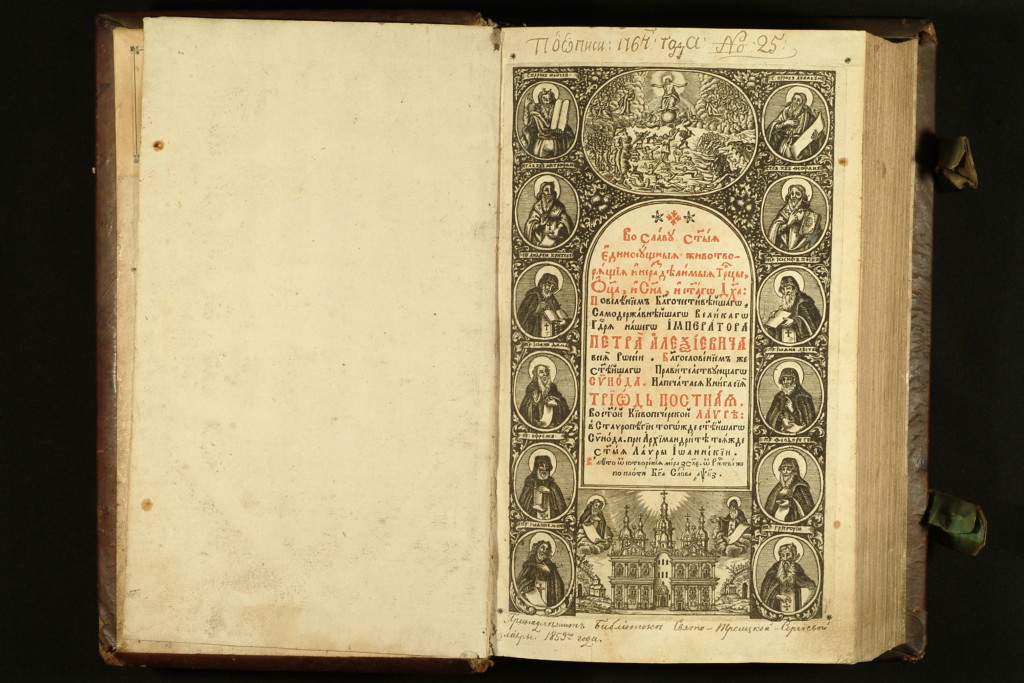 По Ѻписи: 1767 года No 25
Во славу ст҃ыѧ
Единосꙋщныѧ животво-
рѧщїѧ и нераздѣлимыѧ Трⷪ҇цы,
Ѻц҃а, и Сн҃а, и ст҃агѡ Дх҃а:
Повелѣнїемъ Бл҃гочестивѣйшагѡ,
Самодержавнѣйшагѡ великагѡ
Гдⷭ҇рѧ нашегѡ ІМПЕРАТОРА
ПЕТРА АЛЕѮІЕВИЧА
всеѧ Рѡссїи. Благословенїемъ же
ст҃ѣйшагѡ Правителствꙋющагѡ
СѴНОДА. Напечатасѧ Книга сїѧ
ТРІѠДЬ ПОСТНАѦ.
Во ст҃ой Кїевопечерской ЛАѴРѢ:
в Ставропигїи тогѡжде ст҃ѣйшагѡ
Сѵнода. при Архїмандритѣ тоѧжде
ст҃ыѧ Лаѵры Іѡанникїи.
по плоти Бг҃а Слова
Принадлежитъ Библіотекѣ Свято-Троицкой-Сергіевой
лавры. 1853го года.